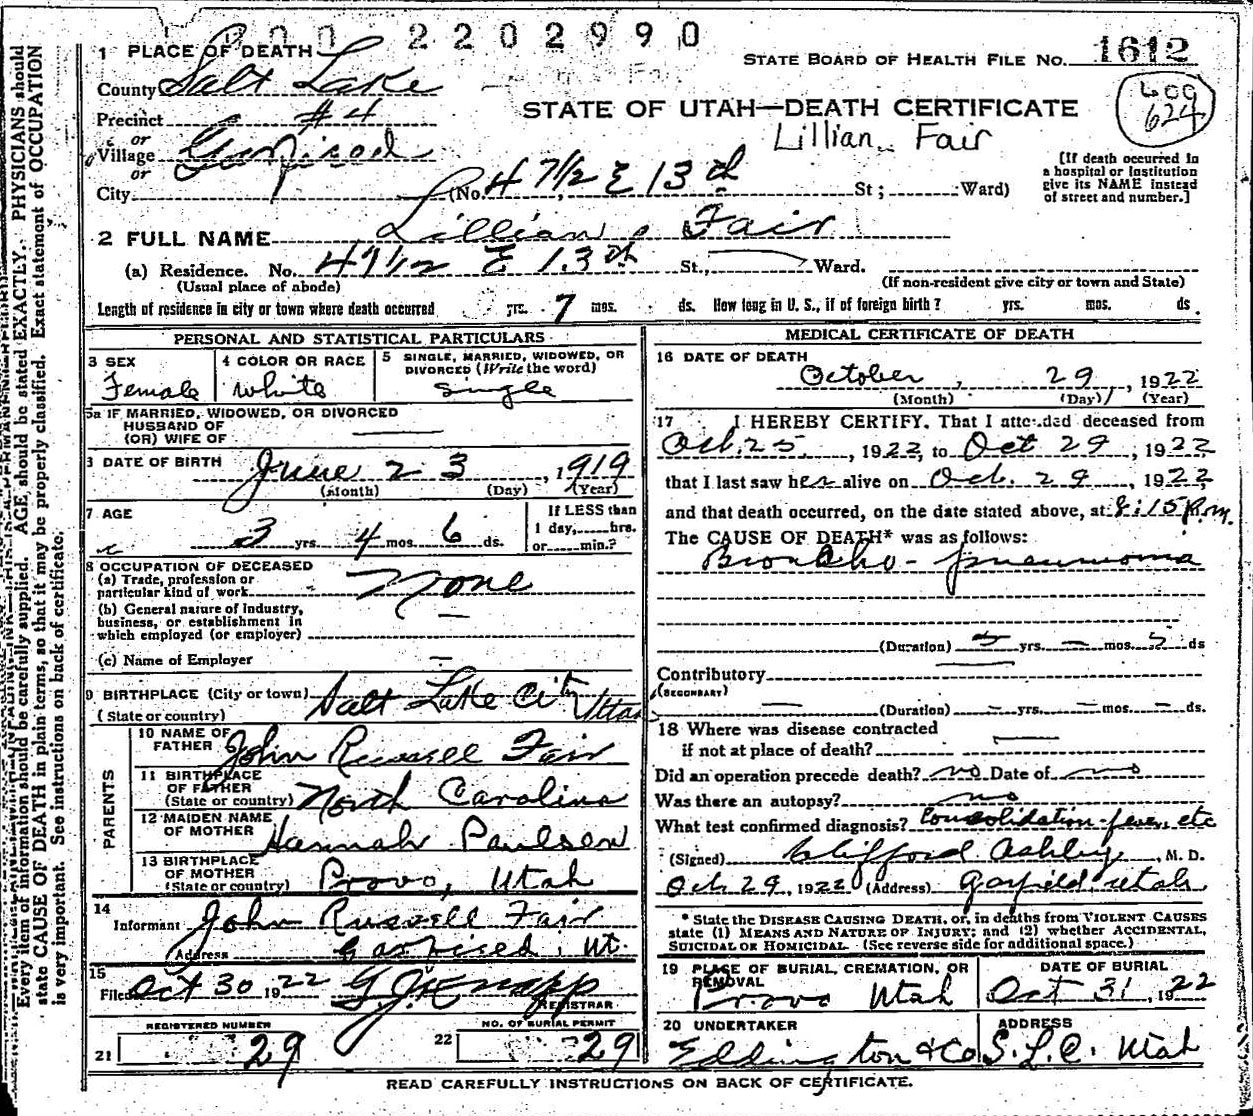 2202990
1 PLACE OF DEATH
STATE BOARD OF HEALTH FILE NO. 1612
County Salt Lake
STATE OF UTAH—DEATH CERTIFICATE
600
624
Precinct #4
Lillian Fair
or
Village
or
City (No. 47 1/2 E 13th St; Ward)
[If death occurred in
a hospital or institution
give its NAME instead
of street and number.]
2 FULL NAME Lillian Fair
(a) Residence. No. 47 1/2 E 13th St., Ward.
(Usual place of abode) (If non-resident give city or town and State)
Length of residence in city or town where death occurred yrs. 7 mos. ds. How long in U. S., if of foreign birth? yrs. mos. ds.
PERSONAL AND STATISTICAL PARTICULARS
3 SEX Female
4 COLOR OR RACE white
5 SINGLE, MARRIED, WIDOWED, OR
DIVORCED (Write the word)
single
5a IF MARRIED, WIDOWED, OR DIVORCED
HUSBAND OF
(OR) WIFE OF —
DATE OF BIRTH June 23, 1919
(Month) (Day) (Year)
7 AGE
3 yrs. 4 mos. 6 ds.
If LESS than
1 day,......hrs.
or......min.?
8 OCCUPATION OF DECEASED
(a) Trade, profession or
particular kind of work None
(b) General nature of Industry,
business, or establishment in
which employed (or employer) —
(c) Name of Employer —
9 BIRTHPLACE (City or town) Salt Lake City
(State or country) Utah
PARENTS
10 NAME OF
FATHER John Russell Fair
11 BIRTHPLACE
OF FATHER
(State or country) North Carolina
12 MAIDEN NAME
OF MOTHER Hannah Paulsen
13 BIRTHPLACE
OF MOTHER
(State or country) Provo, Utah
14
Informant John Russell Fair
Address Ut.
15
Filed Oct 30 1922 G.J. Knapp
REGISTRAR
REGISTERED NUMBER
21 29
NO. OF BURIAL PERMIT
22 29
MEDICAL CERTIFICATE OF DEATH
16 DATE OF DEATH
October 29, 1922
(Month) (Day) (Year)
17 I HEREBY CERTIFY. That I attended deceased from
Oct. 25, 1922, to Oct 29, 1922
that I last saw her alive on Oct. 29, 1922
and that death occurred, on the date stated above, at 8:15 P.m.
The CAUSE OF DEATH* was as follows:
Broncho-pneumonia
(Duration) yrs. – mos. 5 ds
Contributory —
(SECONDARY)
— (Duration) – yrs. – mos. – ds.
18 Where was disease contracted
if not at place of death? —
Did an operation precede death? no Date of no
Was there an autopsy? no
What test confirmed diagnosis? Consolidation-fever, etc
(Signed) Clifford Ashby, M. D.
Oct 29, 1922 (Address) Garfield, Utah
* State the DISEASE CAUSING DEATH, or, in deaths from VIOLENT CAUSES
state (1) MEANS AND NATURE OF INJURY; and (2) whether ACCIDENTAL,
SUICIDAL OR HOMICIDAL. (See reverse side for additional space.)
19 PLACE OF BURIAL, CREMATION, OR
REMOVAL
Provo Utah
DATE OF BURIAL
Oct 31, 1922
20 UNDERTAKER
Eddington & Co
ADDRESS
S.L.C. Utah
READ CAREFULLY INSTRUCTIONS ON BACK OF CERTIFICATE.
Every item of information should be carefully supplied. AGE should be stated EXACTLY. PHYSICIANS should
state CAUSE OF DEATH in plain terms, so that it may be properly classified. Exact statement of OCCUPATION
is very important. See instructions on back of certificate.